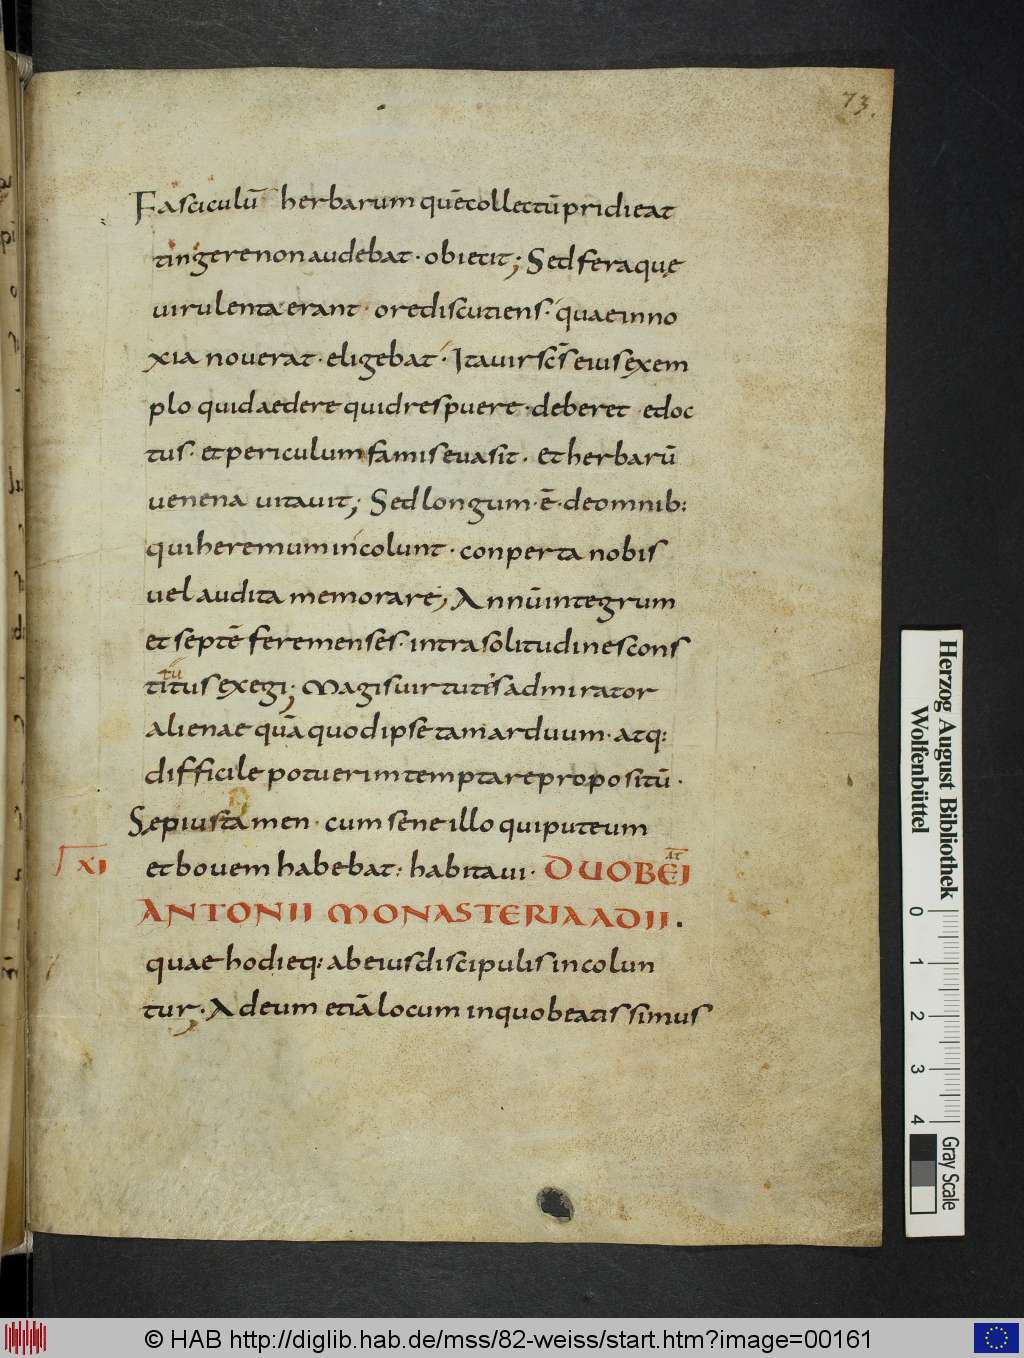 73.
Fasciculū herbarum quē collectū pridie at
tingere non audebat · obiecit; Sed fera quę
virulenta erant · ore discutiens · quae inno
xia noverat · eligebat · Ita vir scs̄ eius exem
plo quid aedere quid respuere · deberet · edoc
tus · et periculum famis evasit · et herbarū
venena vitavit; Sed longum · ē · de omnib:
qui heremum incolunt · conperta nobis
vel audita memorare; Annū integrum
et septē fere menses · intra solitudines cons
tū
titus exegi; Magis virtutis admirator
alienae quā quod ipse tam arduum · atq:
difficile potuerim temptare propositū ·
Sępius tamen · cum sene illo qui puteum
XI et bovem habebat: habitavi · DUO BEĪ
AT
ANTONII MONASTERIA ADII ·
quae hodieq: ab eius discipulis incolun
tur; · Ad eum etiā locum in quo beatissimus
Herzog August Bibliothek
Wolfenbüttel
0 1 2 3 4
Gray Scale
© HAB http://diglib.hab.de/mss/82-weiss/start.htm?image=00161